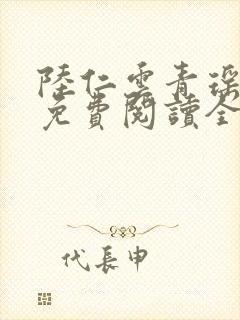 陸仁雲青瑶
免費閱讀全
代長申